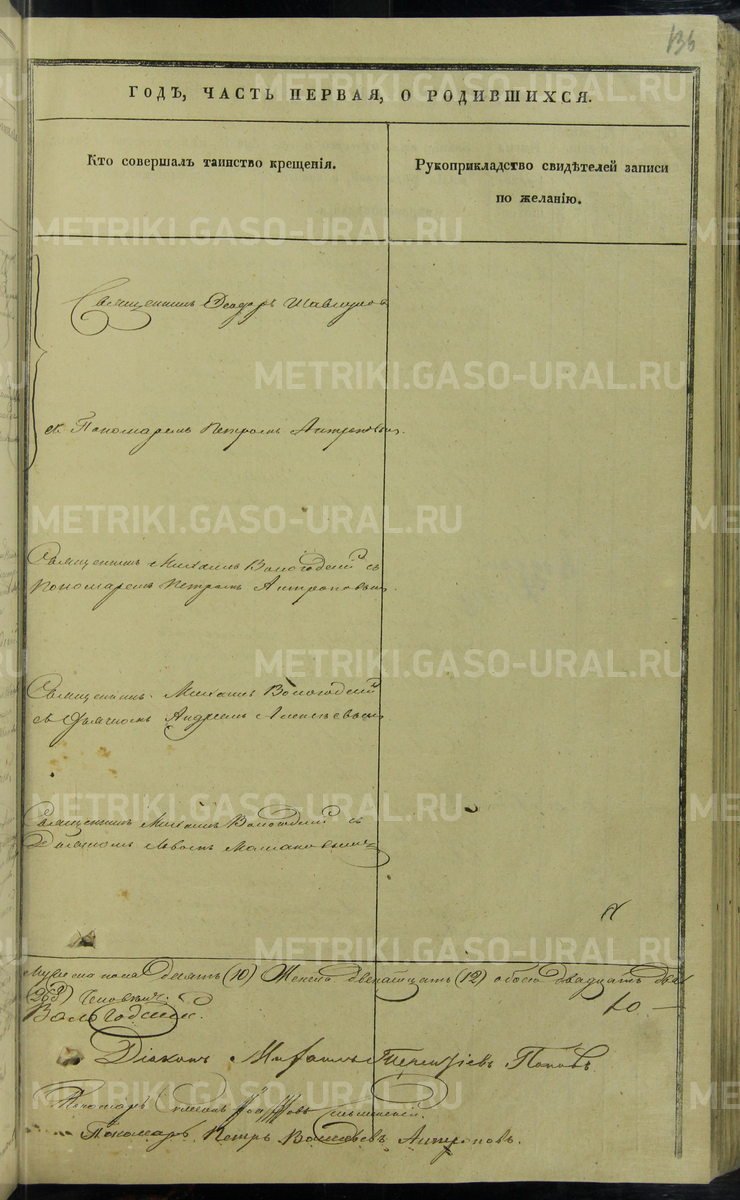 136
ГОДЪ, ЧАСТЬ ПЕРВАЯ, О РОДИВШИХСЯ.
Кто совершалъ таинство крещенія.
Рукоприкладство свидѣтелей записи
по желанію.
METRIKI.GASO-URAL.RU
Священникъ Ѳеодоръ
съ Пономаремъ Петромъ Антроповымъ.
Священникъ Михаилъ Вологодскій съ
Пономаремъ Петромъ Антроповымъ.
Священникъ Михаилъ Вологодскій
съ Дьячкомъ Андреемъ Алексѣевымъ
Священникъ Михаилъ Вологодскій съ
Дьячкомъ
Мужеска пола десять (10) Женска двенатцать (12) обоего двадцать два
Человѣкъ.
Вологодский.
Діаконъ Терентіевъ Поповъ
Пономарь
Пономарь Петръ Антроповъ.